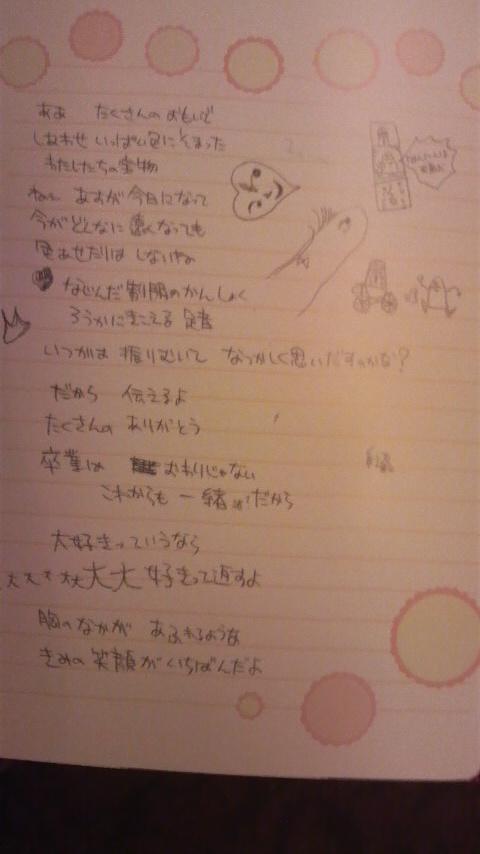 ああ たくさんのおもいで
しあわせ いっぱい色にそまった
わたしたちの宝物
ねぇ あすが今日になって
今がどんなに 遠くなっても
色あせたりは しないね
なじんだ 制服のかんしょく
ろうかにきこえる 足音
いつかは 振りむいて なつかしく思いだすのかな?
だから 伝えるよ
たくさんの ありがとう
卒業は おわりじゃない
これからも 一緒 だから
大好きっていうなら
大大大大大大大好きって返すよ
胸のなかが あふれるような
きみの笑顔がいちばんだよ